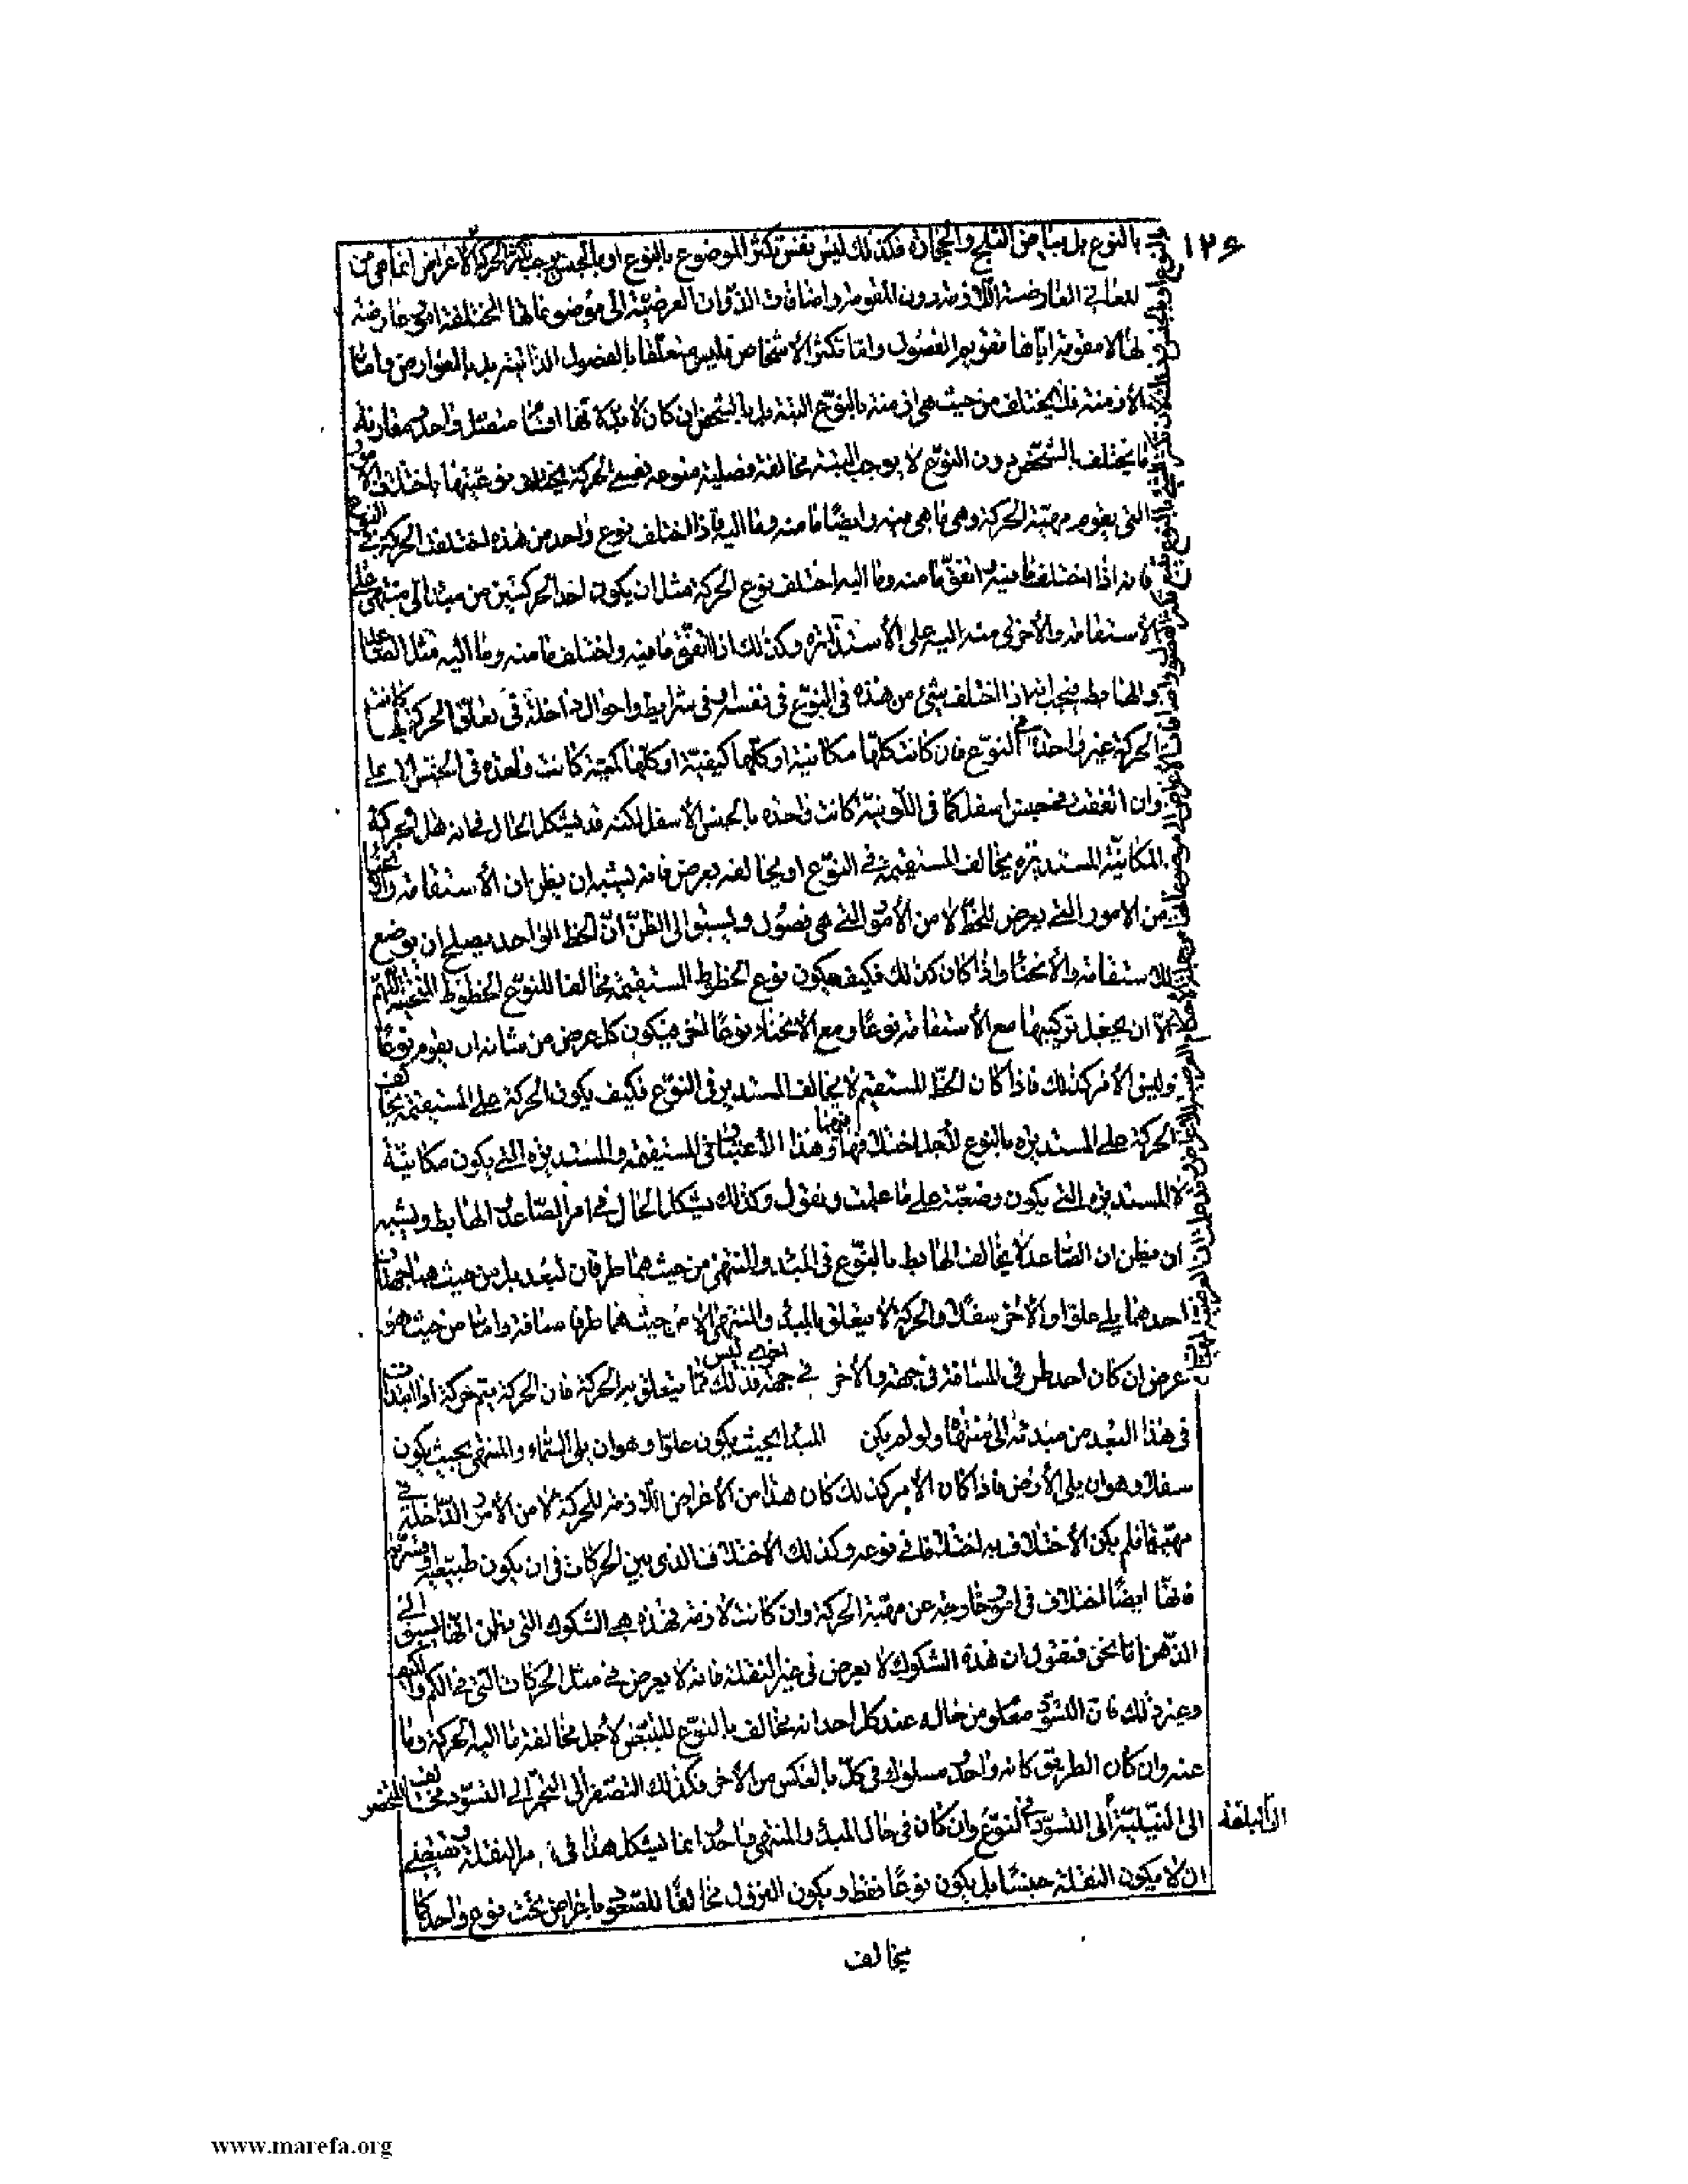 ١٢٦
بالنوع بل بياض الثلج والحجارة فكذلك ليس نفس تكثر الموضوع بالنوع او بالجنس يوجب تكثر الحركة الاعراض انما هي من
المعاني العارضة اللازمة دون المقومة واضافات الذوات العرضية الى موضوعاتها المختلفة امور عارضة
لها لا مقومة اياها تقويم الفصول واما تكثر الأشخاص فليس متعلقا بالفصول الذاتية بل بالعوارض واما
الأزمنة فلا يختلف من حيث هي ازمنة بالنوع البتة بل بالشخص ان كان لا بد لانها اقسام متصل واحد ومقارنة
ما يختلف بالشخص دون النوع لا يوجب البتة مخالفة فصلية منوعة فعسى الحركة يختلف نوعيتها باختلاف الامور
التي يقوم مهية الحركة وهي ما هي فيه وايضا ما منه وما اليه فاذا اختلف نوع واحد من هذه اختلفت الحركة في النوع
فانه اذا اختلف ما فيه واتفق ما منه وما اليه اختلف نوع الحركة مثل ان يكون احد الحركتين من مبدأ الى منتهى على
الأستقامة والأخرى منه اليه على الأستدارة وكذلك اذا اتفق ما فيه واختلف ما منه وما اليه مثل الصاعد
والهابط فيجب انه اذا اختلف شئ من هذه في النوع في نفسه او في شرايط واحوال داخلة في تعلق الحركة بها كانت
الحركة غير واحدة في النوع فان كانت كلها مكانية او كلها كيفية او كلها كمية كانت واحدة في الجنس الاعلى
وان اتفقت في جنس اسفل كما في اللونية كانت واحدة بالجنس الأسفل لكنه قد يشكل الحال في انه هل الحركة
المكانية المستديرة يخالف المستقيمة في النوع او يخالفه بعرض فانه يشبه ان يظن ان الأستقامة والانحناء
من الامور التي يعرض للخط لا من الأمور التي هي فصول ويسبق الى الظن ان الخط الواحد يصلح ان يوضع
للاستقامة والأنحناء واذا كان كذلك فكيف يكون نوع الخطوط المستقيمة مخالفا للنوع الخطوط المنحنية اللهم
الا ان يجعل تركيبها مع الأستقامة نوعا ومع الأنحناء نوعا اخر فيكون كل عرض من شانه ان يقوم نوعا
وليس الأمر كذلك فاذا كان الخط المستقيم لا يخالف المستدير في النوع فكيف يكون الحركة على المستقيمة يخالف
الحركة على المستديرة بالنوع لأجل اختلافهما وهذا الأعتبار في المستقيمة والمستديرة التي يكون مكانية
لا المستديرة التي يكون وضعية على ما علمت ونقول وكذلك يشكل الحال في امر الصاعد والهابط ويشبه
ان يظن ان الصاعد لا يخالف الهابط بالنوع في المبدء والمنتهى من حيث هما طرفان لبعد بل من حيث هما جهتان
احدهما يلي علوا والأخر سفلا والحركة لا يتعلق بالمبدء والمنتهى الا من حيث هما طرفا مسافة واما من حيث هو
عرض ان كان احد طرفي المسافة في جهة والأخر في جهة اخرى فذلك ليس مما يتعلق به الحركة فان الحركة يتم حركة اذا ابتدأت
في هذا البعد من مبدئه الى منتهاه ولو لم يكن المبدأ بحيث يكون علوا وهو ان يلي السماء والمنتهى بحيث يكون
سفلا وهو ان يلي الأرض فاذا كان الأمر كذلك كان هذا من الأعراض اللازمة للحركة لا من الأمور الداخلة في
مهيتها فلم يكن الأختلاف به اختلافا في نوعه وكذلك الأختلاف الذي بين الحركات في ان يكون طبيعية او قسرية
فانها ايضا اختلاف في امور خارجة عن مهية الحركة وان كانت لازمة فهذه هي الشكوك التي يظن انها يسبق الى
الذهن اما نحن فنقول ان هذه الشكوك لا يعرض في غير النقلة فانه لا يعرض في مثل الحركات التي في الكم والكيف
وغير ذلك فان التسود معلوم من حاله عند كل احد انه يخالف بالنوع للتبيض لأجل مخالفة ما اليه الحركة وما
عنه وان كان الطريق كانه واحد مسلوك في كل بالعكس من الأخر وكذلك التصفر الى التحمر الى التسود مخالف للتخضر
الى النيلية الى التسود في النوع وان كان في حال المبدء والمنتهى واحدا انما يشكل هذا في امر النقلة ويقتضي
ان لا يكون النقلة جنسا بل يكون نوعا فقط ويكون النزول مخالفا للصعود باعراض تحت نوع واحد كما
يخالف
www.marefa.org